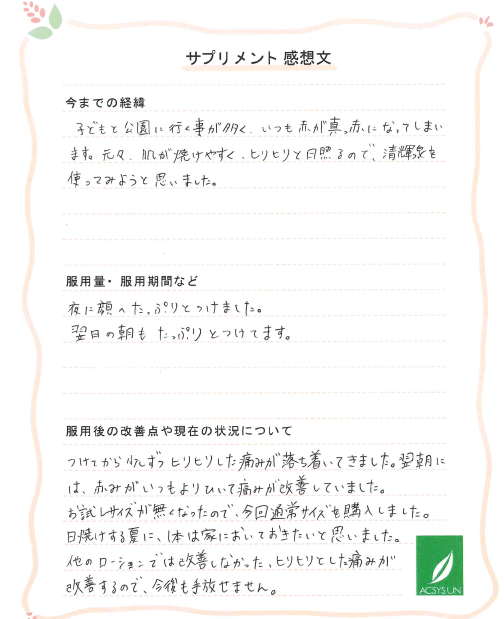 サプリメント 感想文
今までの経緯
子どもと公園に行く事が多く、いつも赤が真っ赤になってしまい
ます。元々、肌が焼けやすく、ヒリヒリと日照るので、清輝泉を
使ってみようと思いました。
服用量・服用期間など
夜に顔へたっぷりとつけました。
翌日の朝もたっぷりとつけてます。
服用後の改善点や現在の状況について
つけてから少しずつヒリヒリした痛みが落ち着いてきました。翌朝に
は、赤みがいつもよりひいて痛みが改善していました。
お試しサイズが無くなったので、今回通常サイズを購入しました。
日焼けする夏に、1本は家においておきたいと思いました。
他のローションでは改善しなかった、ヒリヒリとした痛みが
改善するので、今後も手放せません。
ACSYSUN